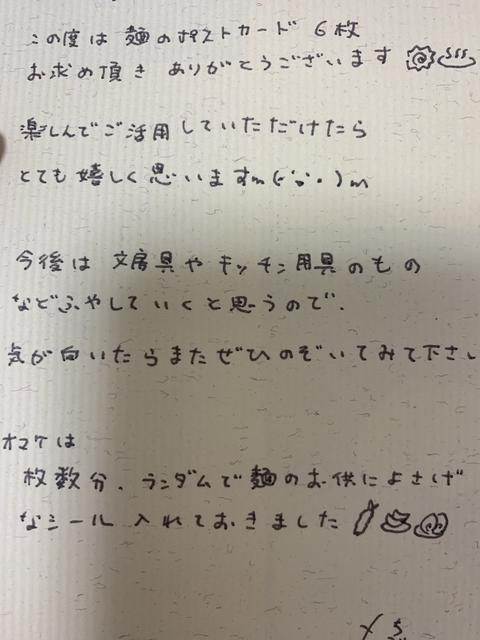 この度は 麺のポストカード 6枚
お求め頂き ありがとうございます
楽しんでご活用していただけたら
とても嬉しく思いますm(・´`・)m
今後は 文房具や キッチン用具のもの
などふやしていくと思うので、
気が向いたらまたぜひのぞいてみて下さい
オマケは
枚数分、ランダムで麺のお供によさげ
なシール 入れておきました